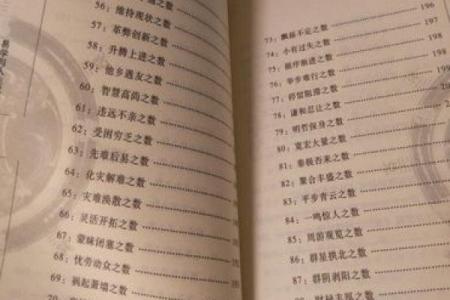 56：维持现状之数
57：革弊创新之数
58：升腾上进之数
59：他乡遇友之数
60：智慧高尚之数
61：违远不亲之数
62：受困穷乏之数
63：先难后易之数
64：化灾解难之数
65：灾难涣散之数
66：灵活开拓之数
67：蒙昧闭塞之数
68：优劳动众之数
69：祸起萧墙之数
73：飘摇不定之数 196
74：小有过失之数 197
75：循序渐进之数
76：举步难行之数
77：停留阻滞之数
78：谦和忍让之数
79：明哲保身之数
80：宽宏大量之数
81：泰极否来之数
82：聚合丰盛之数
83：平步青云之数
84：一鸣惊人之数
85：周游观览之数
86：群星拱北之数
87：群阴剥阳之数